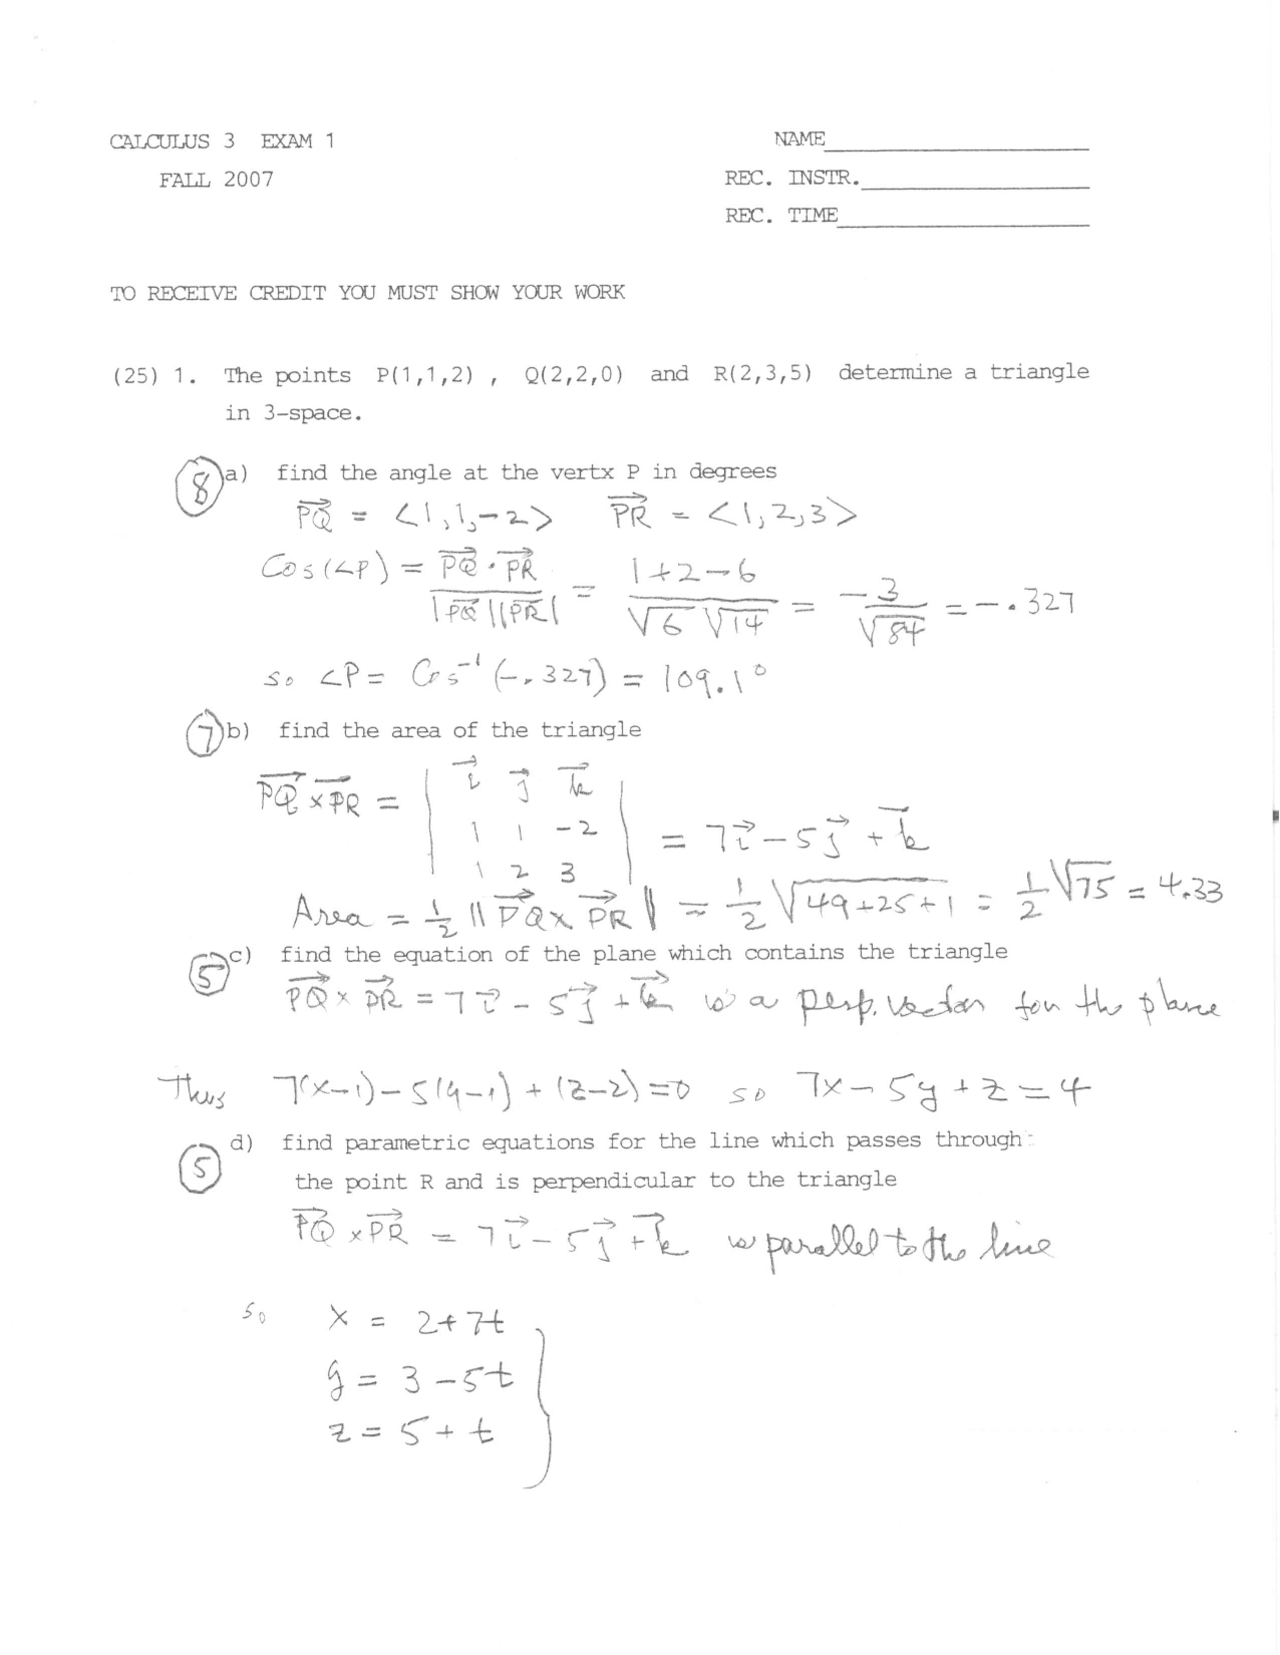 CALCULUS 3 EXAM 1
NAME
FALL 2007
REC. INSTR.
REC. TIME
TO RECEIVE CREDIT YOU MUST SHOW YOUR WORK
(25) 1. The points P(1,1,2) , Q(2,2,0) and R(2,3,5) determine a triangle
in 3-space.
8 a) find the angle at the vertx P in degrees
→PQ = <1,1,-2> →PR = <1,2,3>
Cos(∠P) = →PQ · →PR / |→PQ||→PR| = 1+2-6 / √6 √14 = -3/√84 = -.327
so ∠P = Cos⁻¹(-.327) = 109.1°
7 b) find the area of the triangle
→PQ × →PR = | →i →j →k
1 1 -2
1 2 3 | = 7→i - 5→j + →k
Area = 1/2 ||→PQ × →PR|| = 1/2 √49+25+1 = 1/2 √75 = 4.33
5 c) find the equation of the plane which contains the triangle
→PQ × →PR = 7→i - 5→j + →k is a perp. vector for the plane
Thus 7(x-1) - 5(y-1) + (z-2) = 0 so 7x - 5y + z = 4
5 d) find parametric equations for the line which passes through
the point R and is perpendicular to the triangle
→PQ × →PR = 7→i - 5→j + →k is parallel to the line
so x = 2+7t
y = 3-5t
z = 5+t }